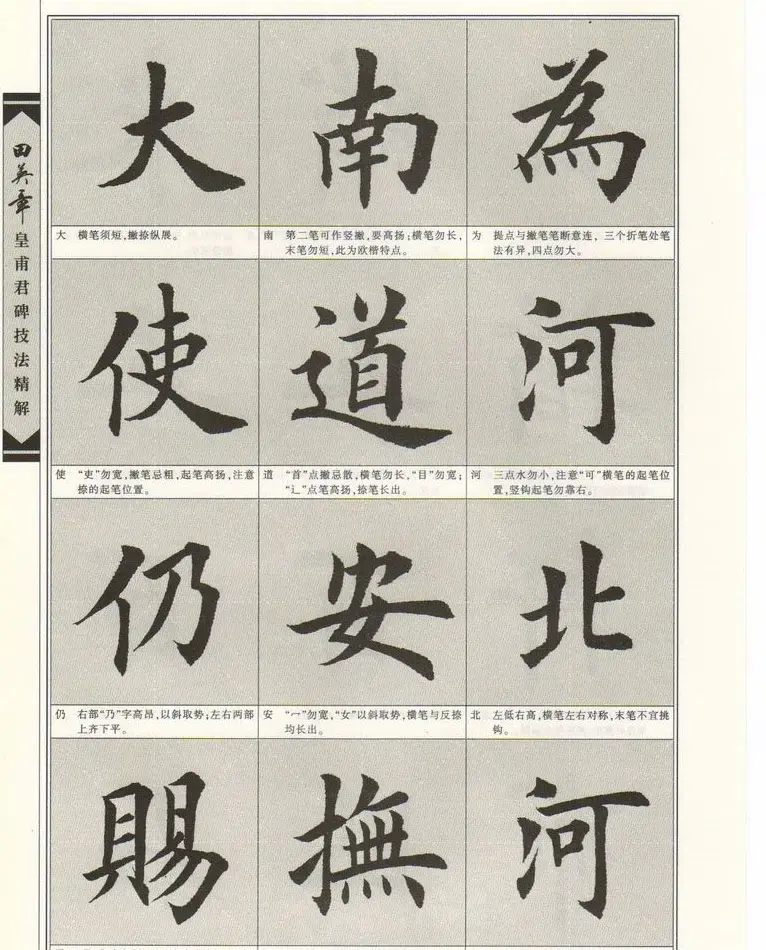 田英章皇甫君碑技法精解
為
为 提点与撇笔笔断意连，三个折笔处笔
法有异，四点勿大。
河
河 三点水勿小，注意“可”横笔的起笔位
置，竖钩起笔勿靠右。
北
北 左低右高，横笔左右对称，末笔不宜挑
钩。
河
南
南 第二笔可作竖撇，要高扬；横笔勿长，
末笔勿短，此为欧楷特点。
道
道 “首”点撇忌散，横笔勿长，“目”勿宽；
“辶”点笔高扬，捺笔长出。
安
安 “宀”勿宽，“女”以斜取势，横笔与反捺
均长出。
撫
大
大 横笔须短，撇捺纵展。
使
使 “吏”勿宽，撇笔忌粗，起笔高扬，注意
捺的起笔位置。
仍
仍 右部“乃”字高昂，以斜取势；左右两部
上齐下平。
賜